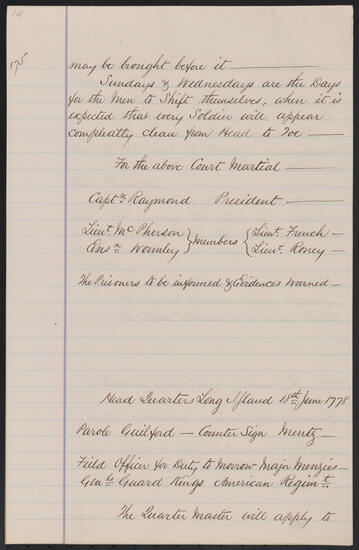 14
175
may be brought before it —
Sundays & Wednesdays are the Days
for the Men to Shift themselves, when it is
expected that every Soldier will appear
compleatly clean from Head to Toe —
For the above Court Martial —
Captn Raymond President —
Lieut. McPherson } Members { Lieut. French —
Ensn Wormley } { Lieut. Roney —
The Prisoners to be informed & Evidences Warned —
Head Quarters Long Island 18th June 1778
Parole Guilford — Counter Sign Mentz —
Field Officer for Duty to Morrow Major Menzies —
Genls Guard Kings American Regimt —
The Quarter Master will apply to